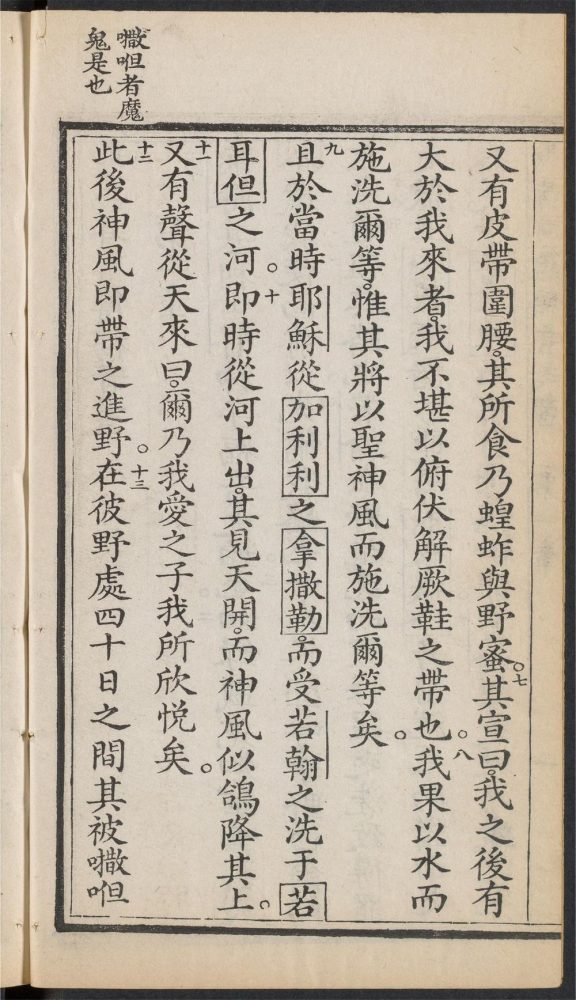 又有皮帶圍腰。其所食乃蝗蚱與野蜜。七其宣曰。我之後有
大於我來者。我不堪以俯伏解厥鞋之帶也。八我果以水而
施洗爾等。惟其將以聖神風而施洗爾等矣。
九且於當時耶穌從加利利之拿撒勒。而受若翰之洗于若
耳但之河。十即時從河上出。其見天開。而神風似鴿降其上。
十一又有聲從天來曰。爾乃我愛之子我所欣悅矣。
十二此後神風即帶之進野。十三在彼野處四十日之間其被𠹌呾
𠹌呾者魔
鬼是也